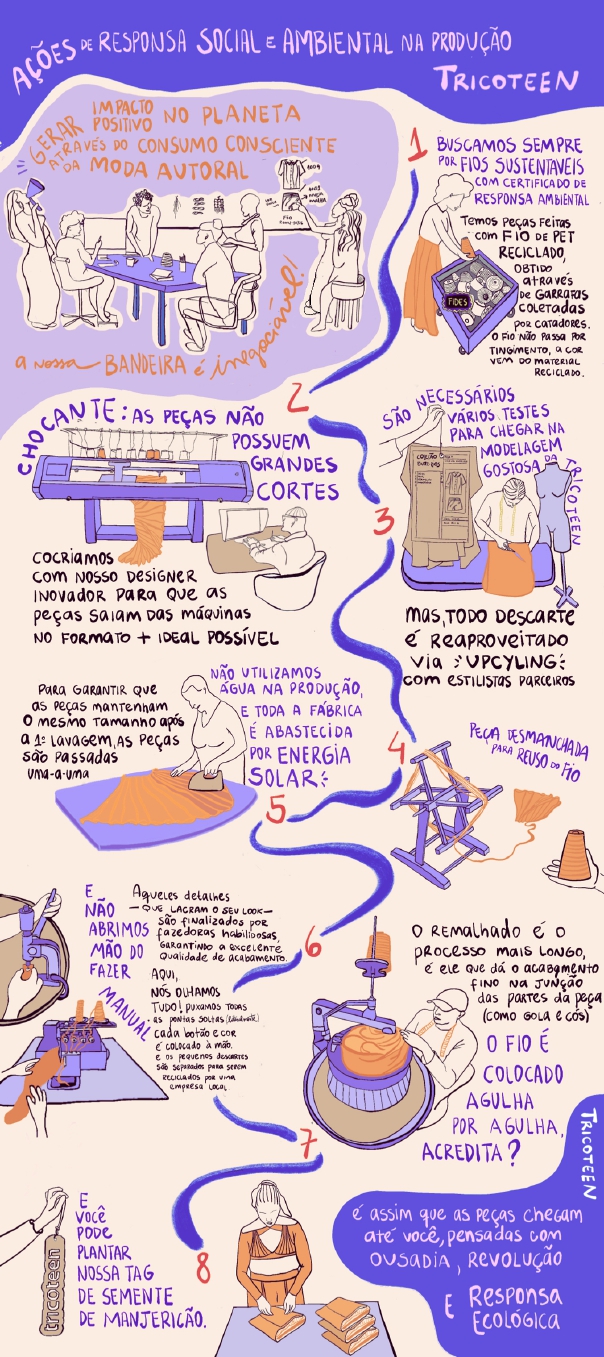 AÇÕES DE RESPONSA SOCIAL E AMBIENTAL NA PRODUÇÃO
TRICOTEEN
GERAR IMPACTO POSITIVO NO PLANETA
ATRAVÉS DO CONSUMO CONSCIENTE
DA MODA AUTORAL
100%
FIO
a nossa BANDEIRA é inegociável!
1
BUSCAMOS SEMPRE
POR FIOS SUSTENTAVÉIS
COM CERTIFICADO DE
RESPONSA AMBIENTAL
TEMOS PEÇAS FEITAS
COM FIO DE PET
RECICLADO,
OBTIDO
ATRAVÉS
DE GARRAFAS
COLETADAS
POR CATADORES.
O FIO NÃO PASSA POR
TINGIMENTO, A COR
VEM DO MATERIAL
RECICLADO.
FIDES
2
CHOCANTE: AS PEÇAS NÃO
POSSUEM
GRANDES
CORTES
COCRIAMOS
COM NOSSO DESIGNER
INOVADOR PARA QUE AS
PEÇAS SAIAM DAS MÁQUINAS
NO FORMATO + IDEAL POSSÍVEL
3
SÃO NECESSÁRIOS
VÁRIOS TESTES
PARA CHEGAR NA
MODELAGEM
GOSTOSA DA TRICOTEEN
MAS, TODO DESCARTE
É REAPROVEITADO
VIA UPCYLING
COM ESTILISTAS PARCEIROS
PARA GARANTIR QUE
AS PEÇAS MANTENHAM
O MESMO TAMANHO APÓS
A 1ª LAVAGEM, AS PEÇAS
SÃO PASSADAS
UMA-A-UMA
NÃO UTILIZAMOS
ÁGUA NA PRODUÇÃO,
E TODA A FÁBRICA
É ABASTECIDA
POR ENERGIA
SOLAR
4
PEÇA DESMANCHADA
PARA REUSO DO FIO
5
E
NÃO
ABRIMOS
MÃO DO
FAZER
MANUAL
Aqueles detalhes
— QUE LACRAM O SEU LOOK —
SÃO FINALIZADOS POR
FAZEDORAS HABILIDOSAS,
GARANTINDO A EXCELENTE
QUALIDADE DE ACABAMENTO.
AQUI,
NÓS OLHAMOS
TUDO! PUXAMOS TODAS
AS PONTAS SOLTAS
CADA BOTÃO E COR
É COLOCADO À MÃO.
E OS PEQUENOS DESCARTES
SÃO SEPARADOS PARA SEREM
RECICLADOS POR UMA
EMPRESA LOCAL
6
O REMALHADO É O
PROCESSO MAIS LONGO,
É ELE QUE DÁ O ACABAMENTO
FINO NA JUNÇÃO
DAS PARTES DA PEÇA
(COMO GOLA E CÓS)
O FIO É
COLOCADO
AGULHA
POR AGULHA,
ACREDITA?
7
TRICOTEEN
tricoteen
E
VOCÊ
PODE
PLANTAR
NOSSA TAG
DE SEMENTE
DE MANJERICÃO.
8
É ASSIM QUE AS PEÇAS CHEGAM
ATÉ VOCÊ, PENSADAS COM
OUSADIA, REVOLUÇÃO
E RESPONSA
ECOLÓGICA